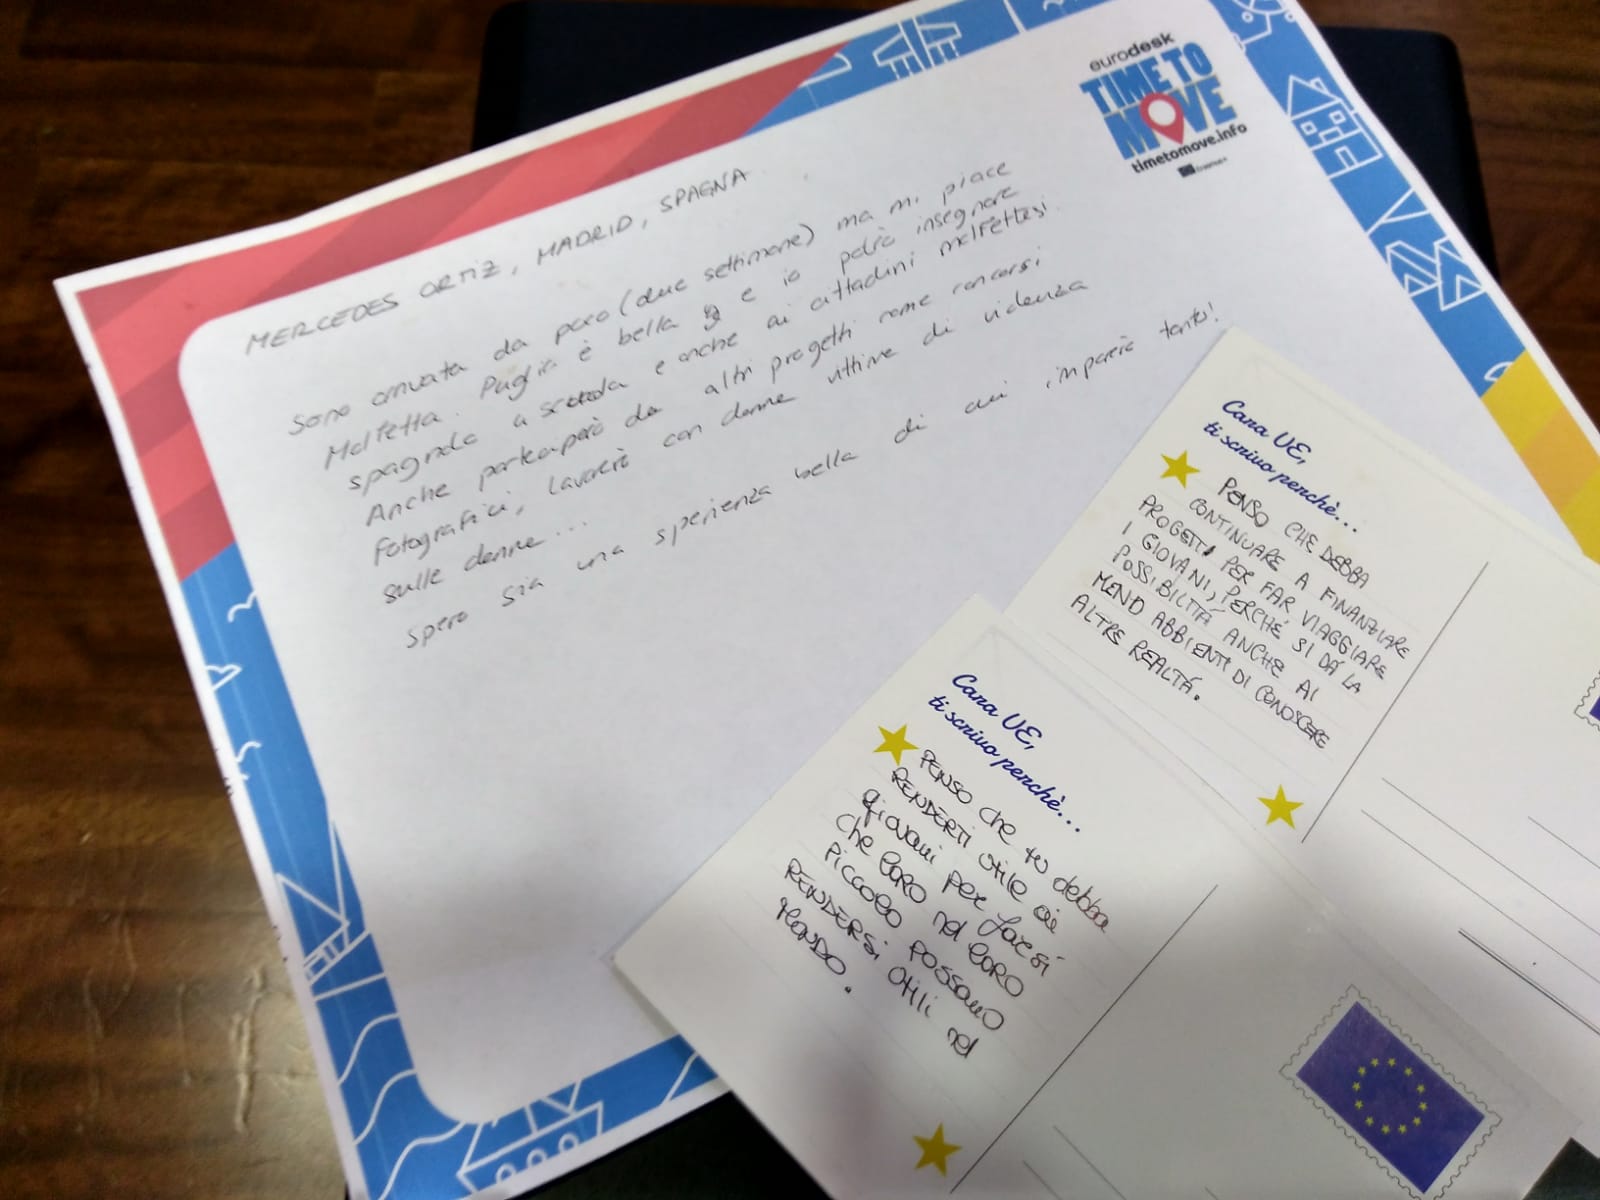 eurodesk
TIME TO
MOVE
timetomove.info
Erasmus+
MERCEDES ORTIZ, MADRID, SPAGNA
Sono arrivata da poco (due settimane) ma mi piace
Molfetta. Puglia è bella e io potrò insegnare
spagnolo a scuola e anche ai cittadini molfettesi.
Anche parteciperò da altri progetti come concorsi
fotografici, lavorerò con donne vittime di videnza
sulle donne...
Spero sia una sperienza bella di cui imparerò tanto!
Cara UE,
ti scrivo perchè...
PENSO CHE DEBBA
CONTINUARE A FINANZIARE
PROGETTI PER FAR VIAGGIARE
I GIOVANI, PERCHÉ SI DÁ LA
POSSIBILITÁ ANCHE AI
MENO ABBIENTI DI CONOSCERE
ALTRE REALTÁ.
Cara UE,
ti scrivo perchè...
PENSO che tu debba
RENDERTI utile ai
giovani per far sì
che loro nel loro
piccolo possano
RENDERSi utili nel
MONDO.